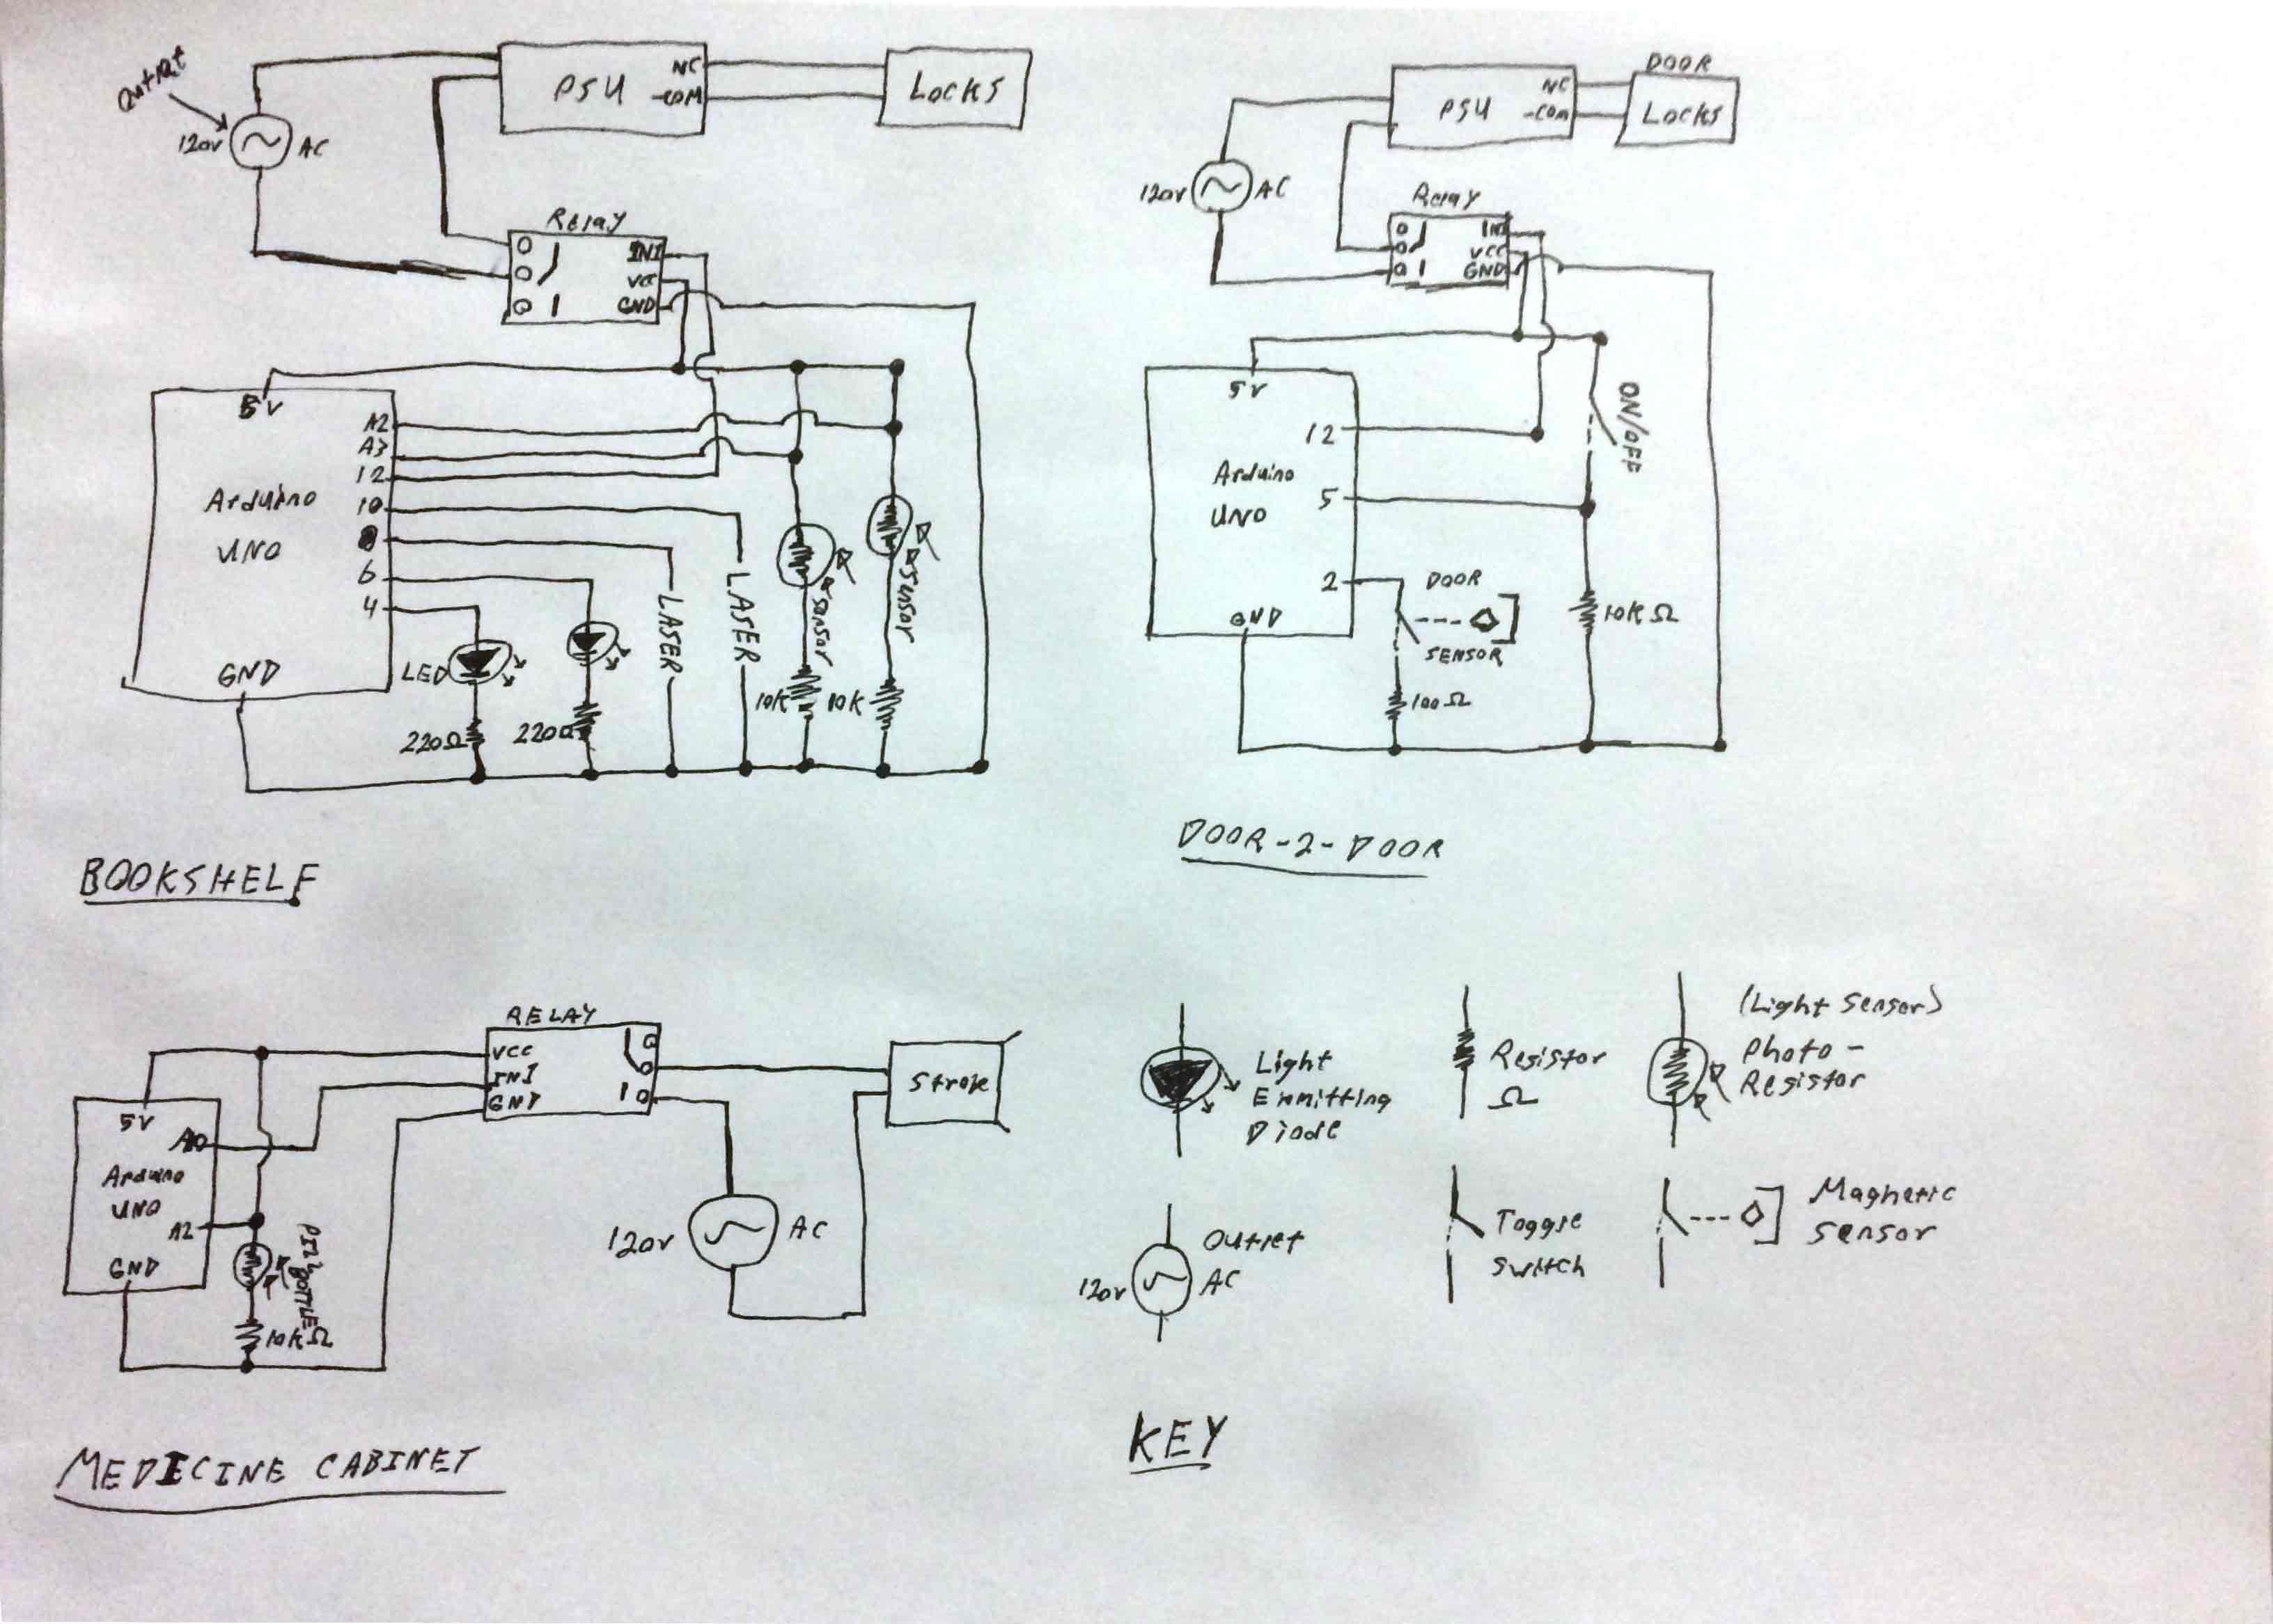 Outlet
120v
AC
PSU
NC
-COM
Locks
Relay
IN1
VCC
GND
5V
A2
A3
12
10
8
6
4
Arduino
UNO
GND
LED
220Ω
220Ω
LASER
LASER
sensor
sensor
10K
10K
BOOKSHELF
120v
AC
PSU
NC
-COM
DOOR
Locks
Relay
IN1
VCC
GND
5V
12
Arduino
5
UNO
2
GND
ON/OFF
DOOR
SENSOR
100Ω
10KΩ
DOOR-2-DOOR
RELAY
VCC
IN1
GND
5V
A0
Arduino
UNO
A2
GND
PILL BOTTLE
10KΩ
120v
AC
MEDICINE CABINET
Light
Emmitting
Diode
Resistor
Ω
(Light Sensor)
Photo-
Resistor
120v
Outlet
AC
Toggle
Switch
Magnetic
Sensor
KEY